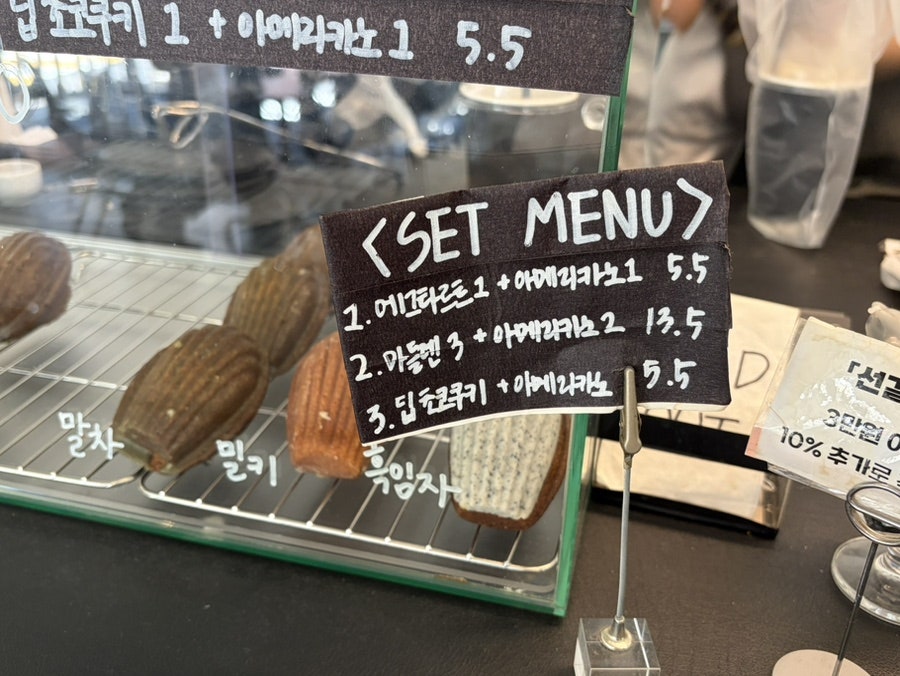 딥초코쿠키 1 + 아메리카노 1 5.5
<SET MENU>
1. 에그타르트1 + 아메리카노1 5.5
2. 마들렌 3 + 아메리카노 2 13.5
3. 딥초코쿠키 + 아메리카노 5.5
말차
밀키
흑임자
「선결
3만원 이
10% 추가로